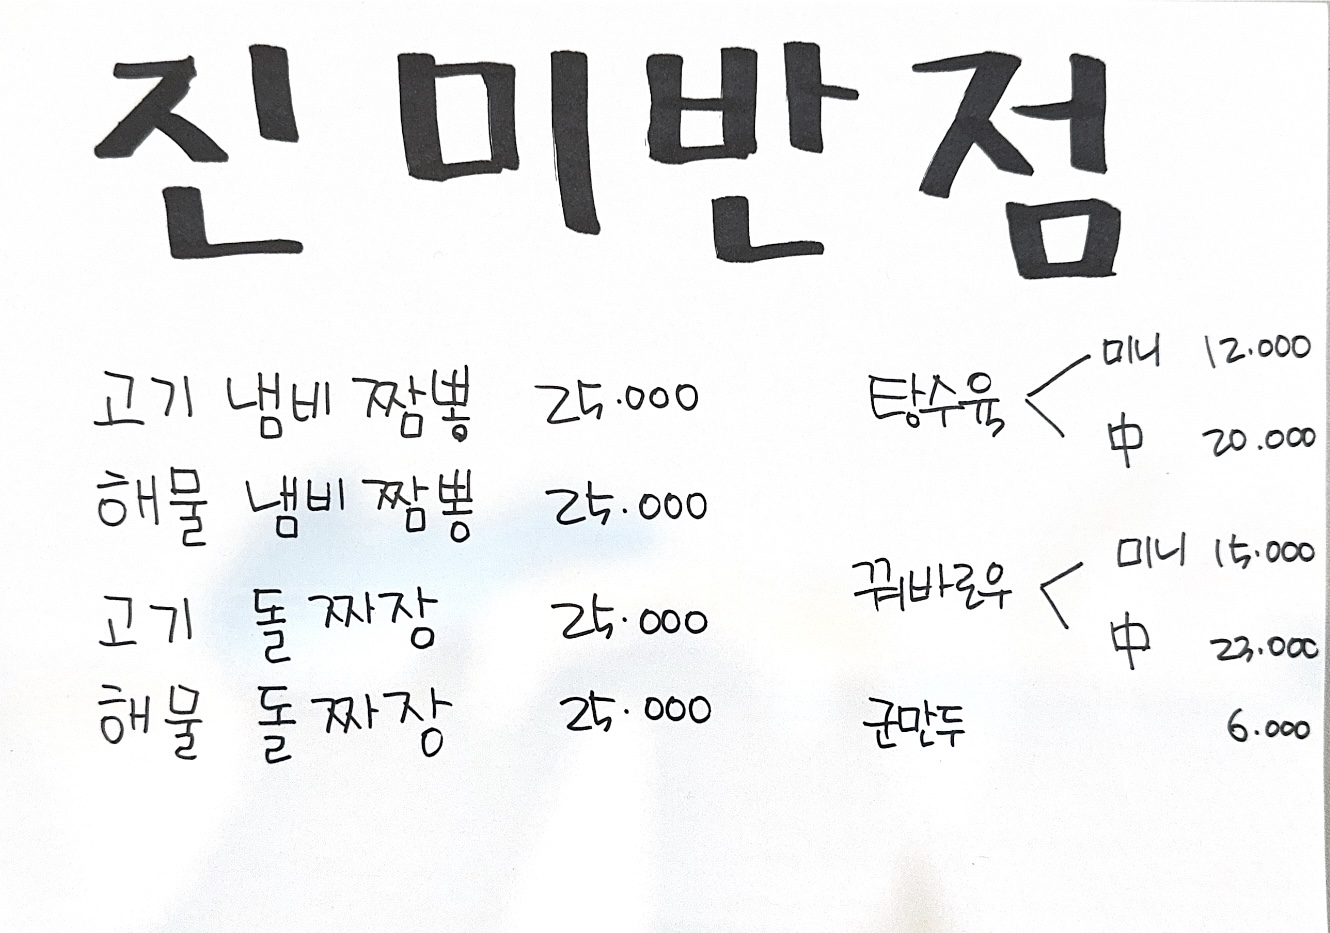 진미반점
고기 냄비 짬뽕 25.000
해물 냄비 짬뽕 25.000
고기 돌 짜장 25.000
해물 돌 짜장 25.000
탕수육 미니 12.000
中 20.000
꿔바로우 미니 15.000
中 23.000
군만두 6.000